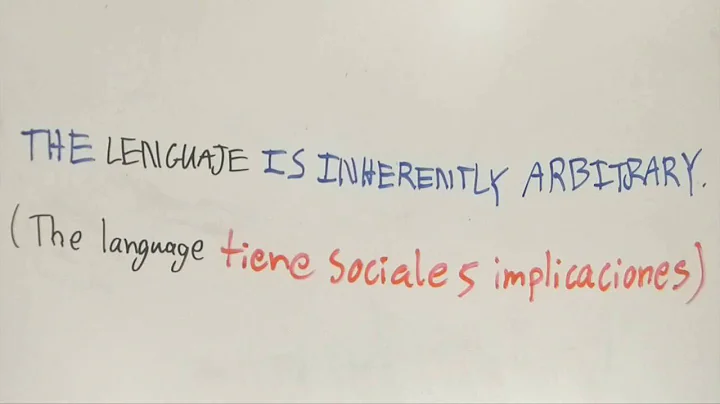 THE LENGUAJE IS INHERENTLY ARBITRARY.
(The language tiene sociales implicaciones)